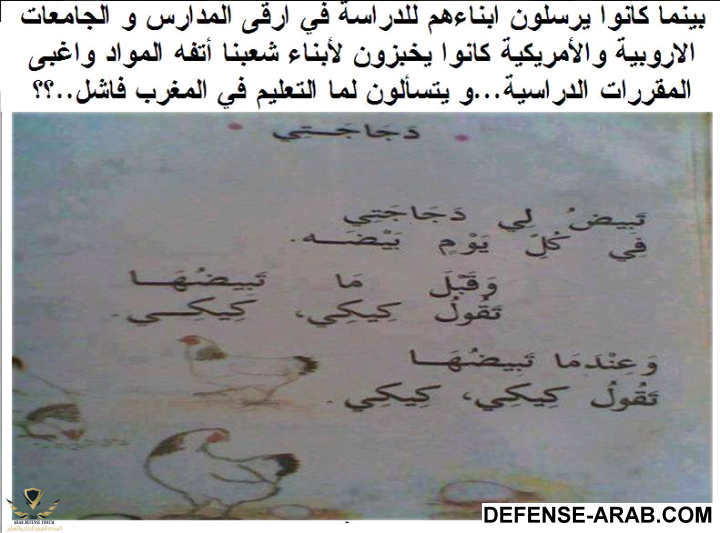 بينما كانوا يرسلون ابناءهم للدراسة في ارقى المدارس و الجامعات
الاروبية والأمريكية كانوا يخبزون لأبناء شعبنا أتفه المواد واغبى
المقررات الدراسية...و يتسألون لما التعليم في المغرب فاشل..؟؟
دَجَاجَـــتِي
تَبِيضُ لِي دَجَاجَتِي
فِي كُلِّ يَوْمٍ بَيْضَـــه.
وَقَبْلَ مَا تَبِيضُهَـــا
تَقُولُ كِيكِي، كِيكِـــي.
وَعِنْدَمَا تَبِيضُهَـــا
تَقُولُ كِيكِي، كِيكِي.
ARAB DEFENSE FORUM
DEFENSE-ARAB.COM